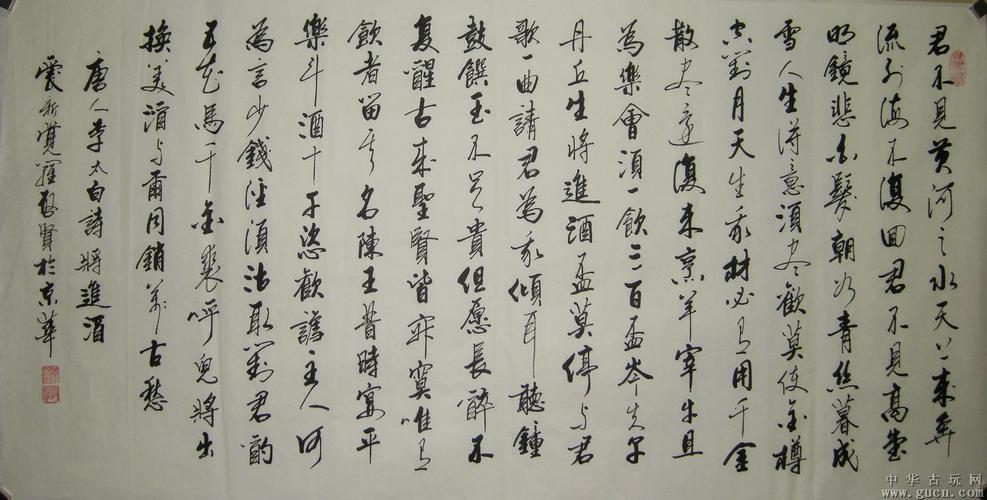 君不見黄河之水天上來奔
流到海不復回君不見高堂
明鏡悲白髮朝如青絲暮成
雪人生得意須盡歡莫使金樽
空對月天生我材必有用千金
散盡還復來烹羊宰牛且
為樂會須一飲三百盃岑夫子
丹丘生將進酒盃莫停与君
歌一曲請君為我傾耳聽鐘
鼓饌玉不足貴但愿長醉不
复醒古來聖賢皆寂寞唯有
飲者留其名陳王昔時宴平
樂斗酒十千恣歡謔主人何
為言少錢徑須沽取對君酌
五花馬千金裘呼兒將出
換美酒与爾同銷萬古愁
唐人李太白詩將進酒
愛新覺羅啟賢於京華
中华古玩网
www.gucn.com